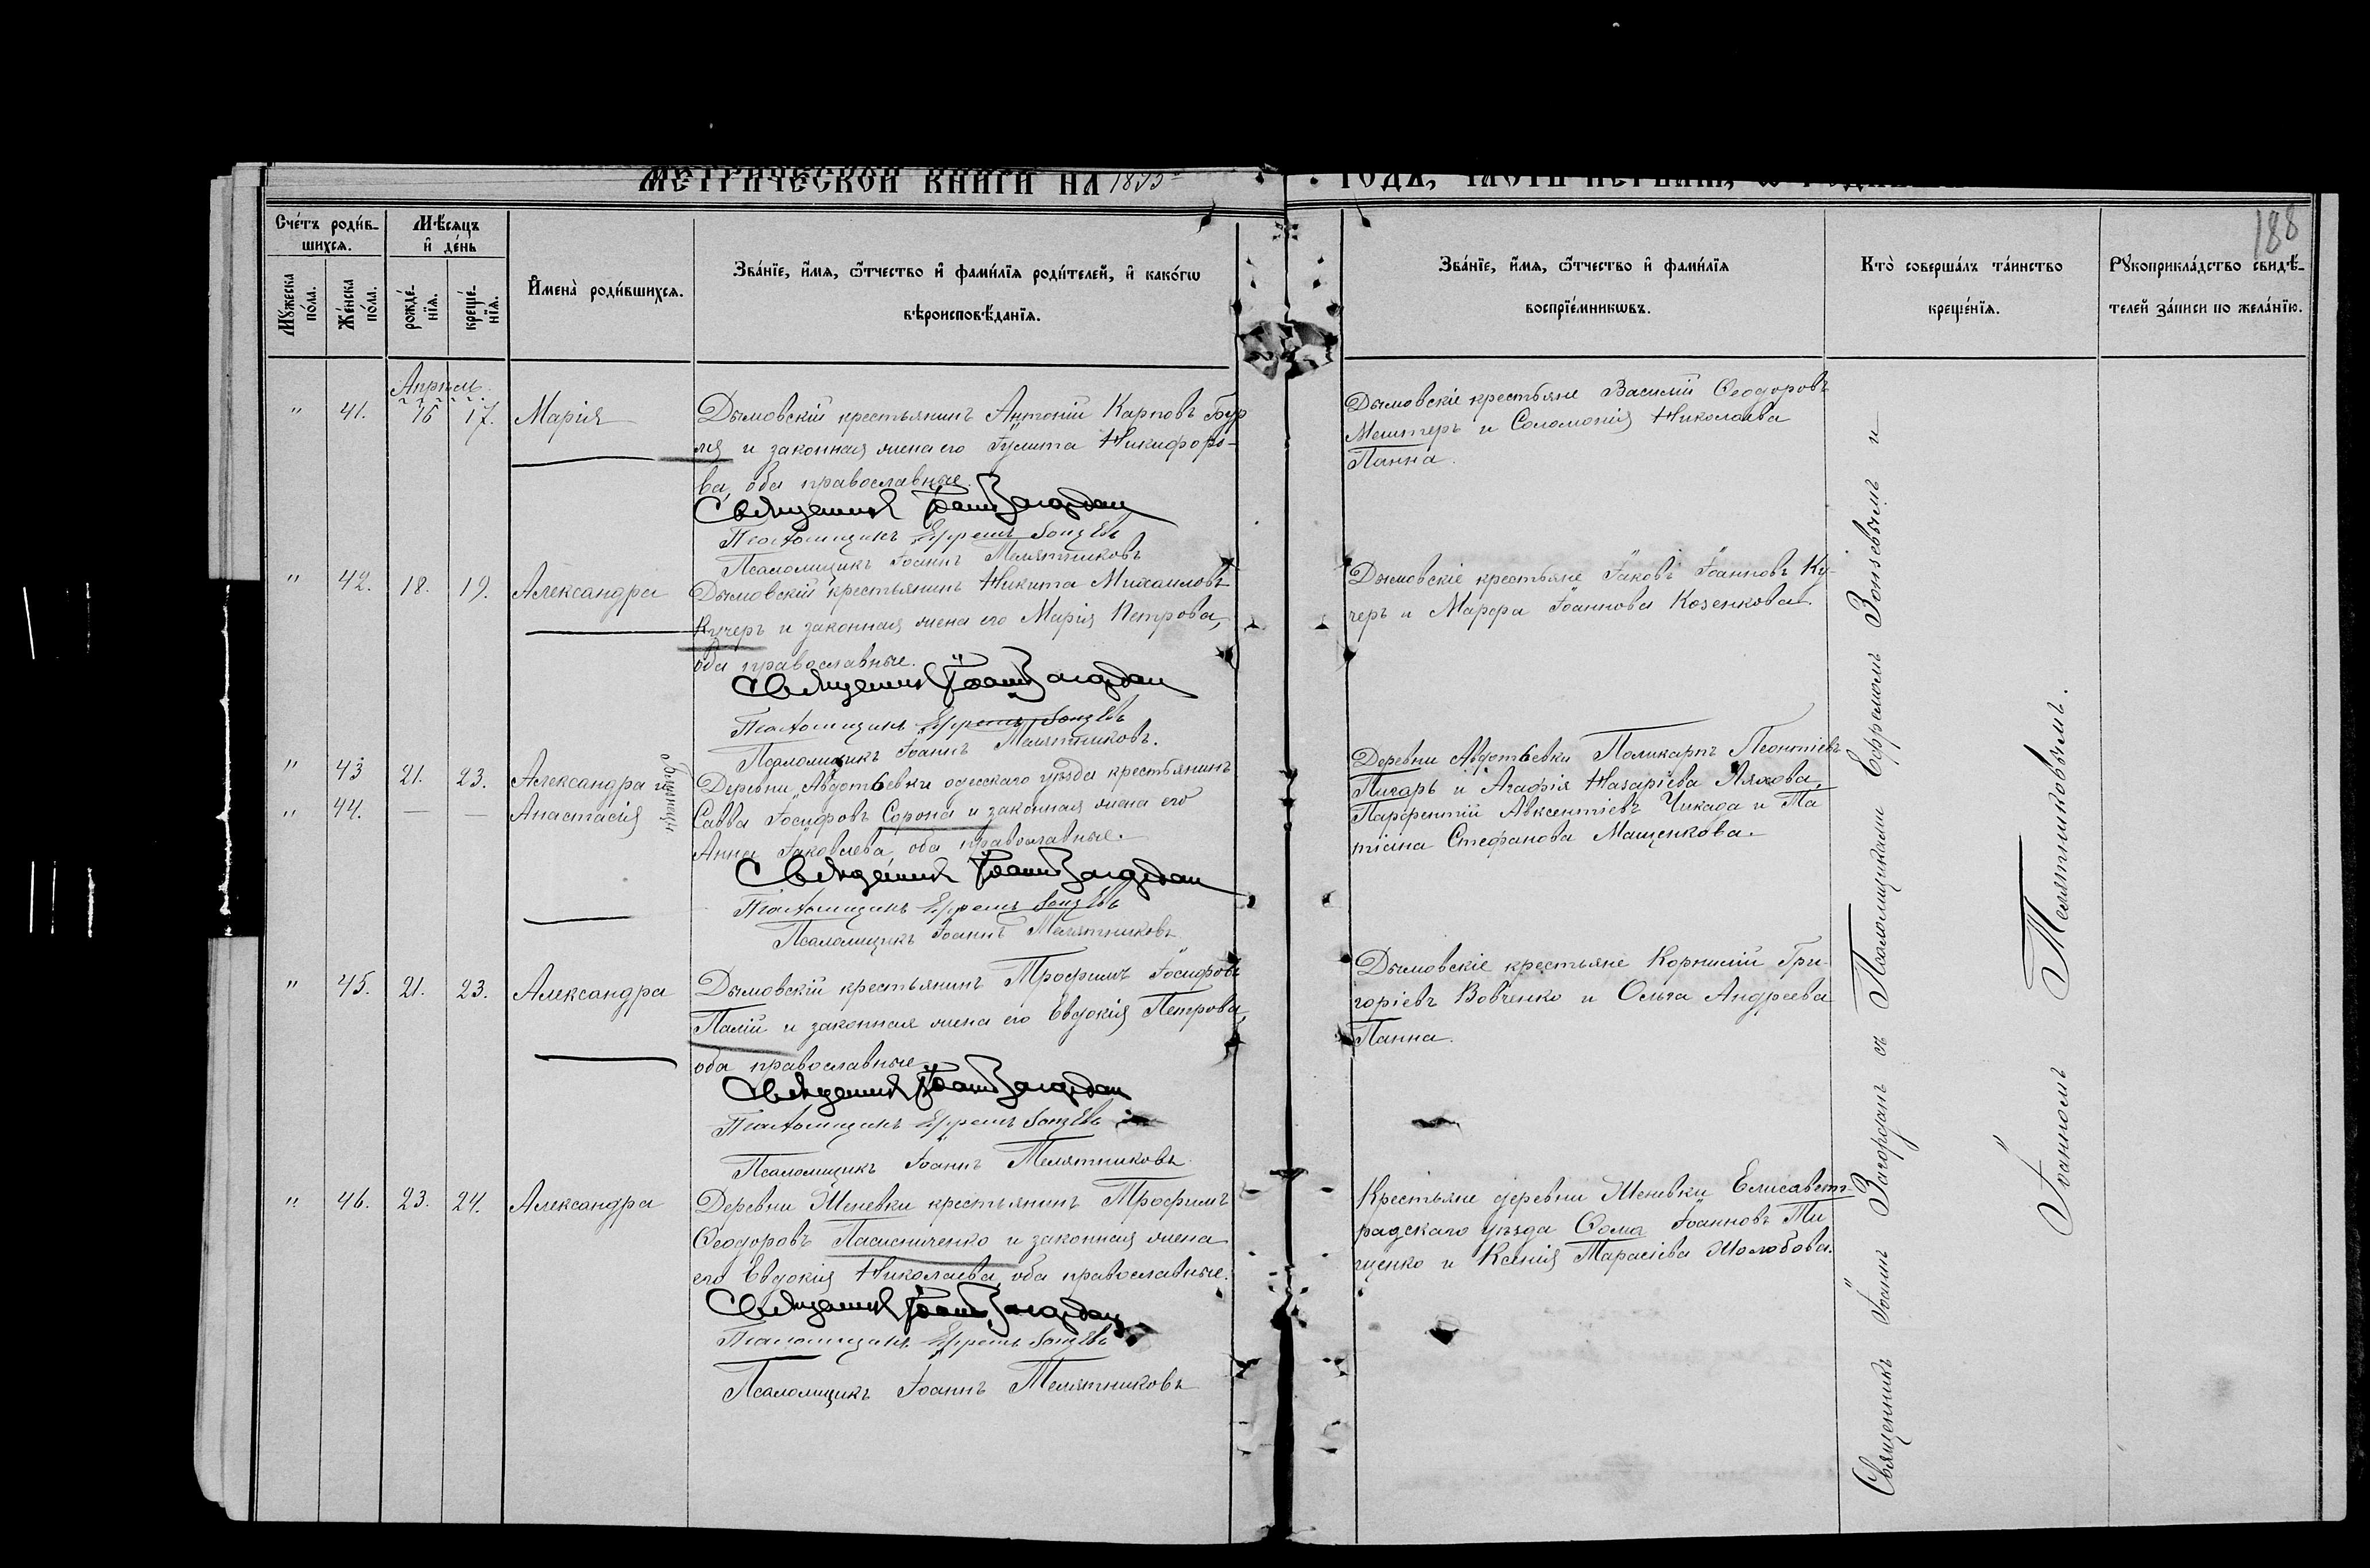 МЕТРИЧЕСКОЙ КНИГИ НА
188
Сче́тъ роди́в-
шихся.
Мѣ́сяцъ
и҆ де́нь
Му́жеска
по́ла.
Же́нска
по́ла.
рожде́-
нїя.
креще́-
нїя.
И҆мена̀ роди́вшихся.
Зва́нїе, и҆́мя, ѻ҆́тчество и҆ фами́лїя роди́телей, и҆ како́гѡ
вѣроисповѣ́данїя.
Зва́нїе, и҆́мя, ѻ҆́тчество и҆ фами́лїя
воспрїе́мникѡвъ.
Кто̀ соверша́лъ та́инство
креще́нїя.
Рꙋкоприкла́дство свидѣ́-
телей за́писи по жела́нїю.
Апрѣль.
" 41. 16 17. Марія
Дымовскій крестьянинъ Антоній Карповъ
и законная жена его Никифоро-
ва, оба православные.
Священникъ Іоаннъ Загордан
Псаломщикъ Ефремъ Зонзевъ
Псаломщикъ Іоаннъ Телятниковъ
Дымовскіе крестьяне Василій Ѳеодоровъ
Мештеръ и Соломонія Николаева
Панна.
" 42. 18. 19. Александра
Дымовскій крестьянинъ Никита Михаиловъ
Кучеръ и законная жена его Марія Петрова,
оба православные.
Священникъ Іоаннъ Загордан
Псаломщикъ Ефремъ Зонзевъ
Псаломщикъ Іоаннъ Телятниковъ.
Дымовскіе крестьяне Іаковъ Іоанновъ Ку-
черъ и Марфа Іоаннова Козенкова.
" 43 21. 23. Александра и
" 44. — — Анастасія
близнецы
Деревни Авдотьевки одесскаго уѣзда крестьянинъ
Савва Іосифовъ Сорока и законная жена его
Анна Іаковлева, оба православные.
Священникъ Іоаннъ Загордан
Псаломщикъ Ефремъ Зонзевъ
Псаломщикъ Іоаннъ Телятниковъ
Деревни Авдотьевки Поликарпъ Леонтіевъ
Пигарь и Агафія Назаріева Ляхова,
Парфентій Авксентіевъ Чикада и Та
тіана Стефанова Мащенкова.
" 45. 21. 23. Александра
Дымовскій крестьянинъ Трофимъ Іосифовъ
Палій и законная жена его Евдокія Петрова,
оба православные
Священникъ Іоаннъ Загордан
Псаломщикъ Ефремъ Зонзевъ
Псаломщикъ Іоаннъ Телятниковъ.
Дымовскіе крестьяне Корнилій Гри-
горіевъ Вовченко и Ольга Андреева
Панна.
" 46. 23. 24. Александра
Деревни Шеневки крестьянинъ Трофимъ
Ѳеодоровъ и законная жена
его Евдокія Николаева, оба православные.
Священникъ Іоаннъ Загордан
Псаломщикъ Ефремъ Зонзевъ
Псаломщикъ Іоаннъ Телятниковъ
Крестьяне деревни Шеневки Елисавет-
радскаго уѣзда Ѳома Іоанновъ Ти
щенко и Ксенія Тарасіева Шолобова.
Священникъ Іоаннъ Загорданъ съ Псаломщиками Ефремомъ Зонзевымъ и
Іоанномъ Телятниковымъ.